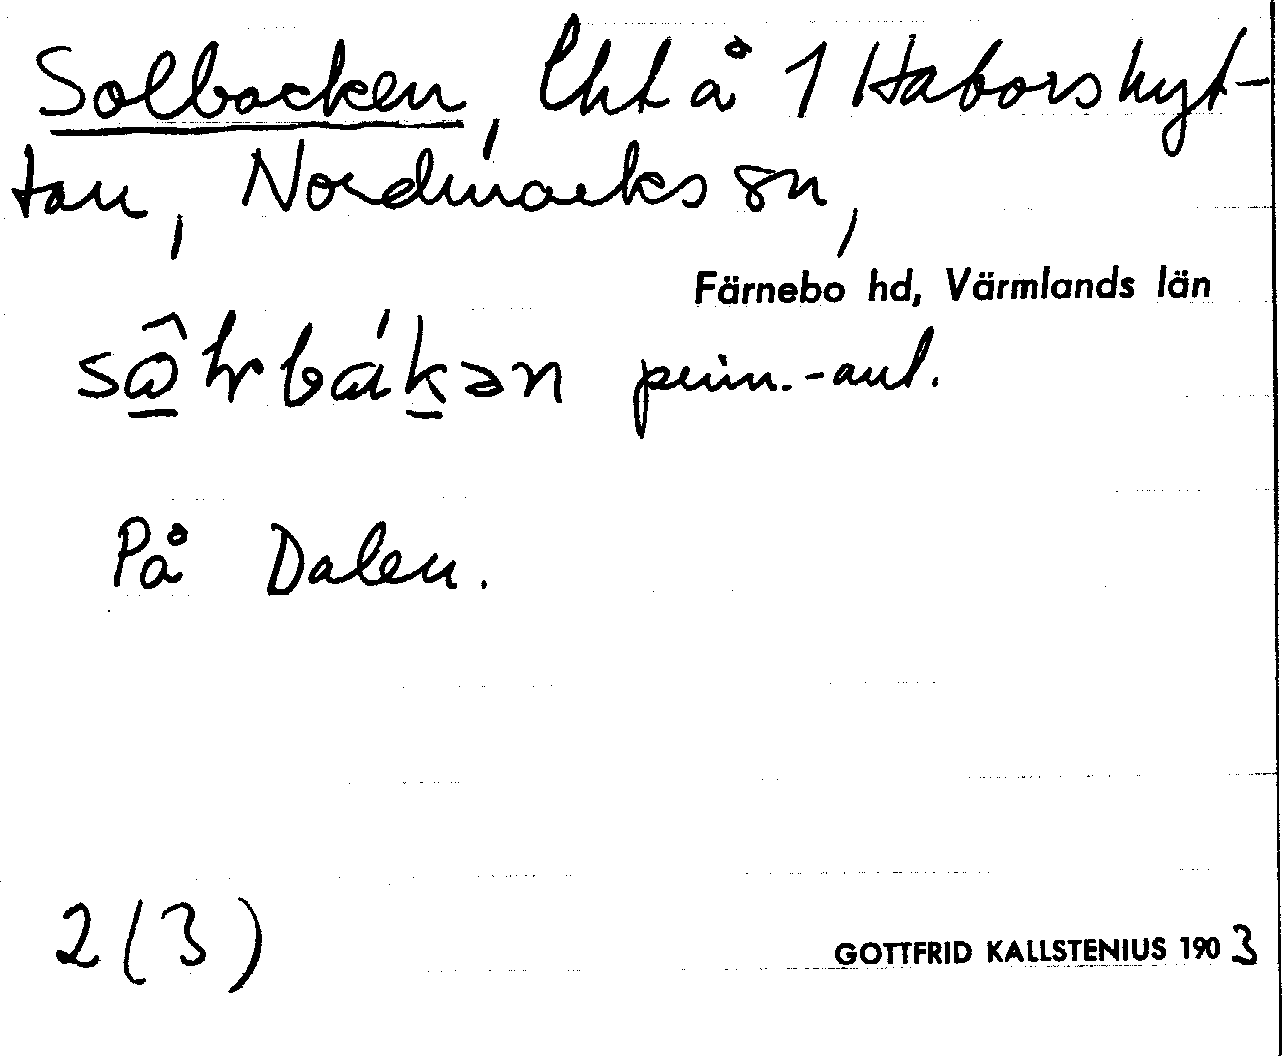 Solbacken, lht å 1 Haborshyt-
tan, Nordmarks sn,
Färnebo hd, Värmlands län
På Dalen.
2(3)
GOTTFRID KALLSTENIUS 1903